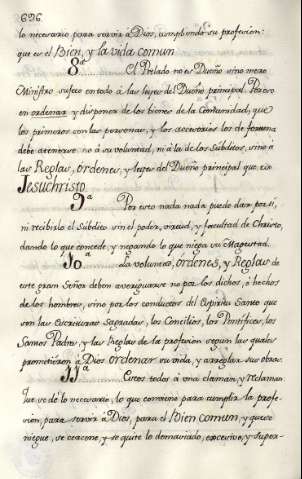 696
lo necesario para servir à Dios, cumpliendo su profesion:
que es el Bien, y la vida comun
8ª El Prelado no es Dueño sino mero
Ministro sujeto en todo à las leyes del Dueño principal. Pero
en ordenar y disponer de los bienes de la Comunidad, que
los primeros son las personas, y los accesorios los de fortuna
debe atenerse no à su voluntad, ni à la de los Subditos, sino à
las Reglas, ordenes, y leyes del Dueño principal que es
Jesuchristo
9ª Por esto nada nada puede dar por sí,
ni recibirlo el Subdito sin el poder, virtud, y facultad de Christo,
dando lo que concede, y negando lo que niega su Magestad.
10ª La voluntad, ordenes, y Reglas de
este gran Señor deben averiguarse no por los dichos, ò hechos
de los hombres, sino por los conductos del Espiritu Santo que
son las Escrituras Sagradas, los Concilios, los Pontifices, los
Santos Padres, y las Reglas de la profesion segun las quales
prometieron à Dios ordenar su vida, y arreglar sus obras.
11ª Estos todos à una claman, y reclaman
que se dè lo necesario, lo que conviene para cumplir la profe-
sion, para servir à Dios, para el Bien comun, y que se
niegue, se cercene, y se quite lo demasiado, excesivo, y super-